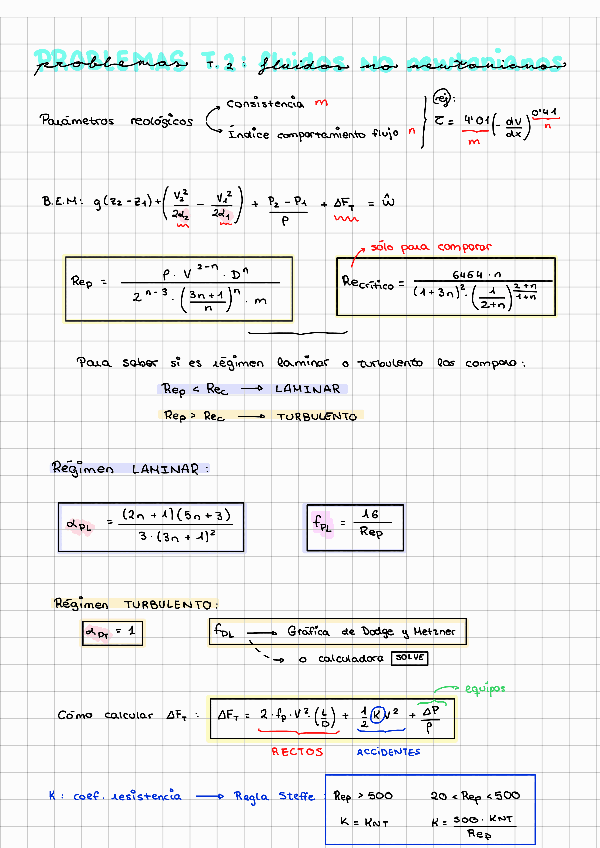 PROBLEMAS T.2: fluidos no newtonianos
problemas
Parámetros reológicos
Consistencia m
Índice comportamiento flujo n
(ej):
τ = 4'01 (- dv/dx)^0'41
m
n
B.E.M: g(z2 - z1) + (V2²/2α2 - V1²/2α1) + (P2 - P1)/ρ + ΔFT = Ŵ
sólo para comparar
Rep = (ρ · V^(2-n) · D^n) / (2^(n-3) · ((3n+1)/n)^n · m)
Recrítico = (6464 · n) / ((1+3n)² · (1/(2+n))^((2+n)/(1+n)))
Para saber si es régimen laminar o turbulento las comparo:
Rep < Rec → LAMINAR
Rep > Rec → TURBULENTO
Régimen LAMINAR:
αPL = ((2n+1)(5n+3)) / (3·(3n+1)²)
fPL = 16/Rep
Régimen TURBULENTO:
αPT = 1
fPL → Gráfica de Dodge y Metzner
o calculadora SOLVE
equipos
Cómo calcular ΔFT: ΔFT = 2·fp·V²·(L/D) + 1/2 K V² + ΔP/ρ
RECTOS
ACCIDENTES
K: coef. resistencia → Regla Steffe:
Rep > 500
20 < Rep < 500
K = KNT
K = (500 · KNT)/Rep